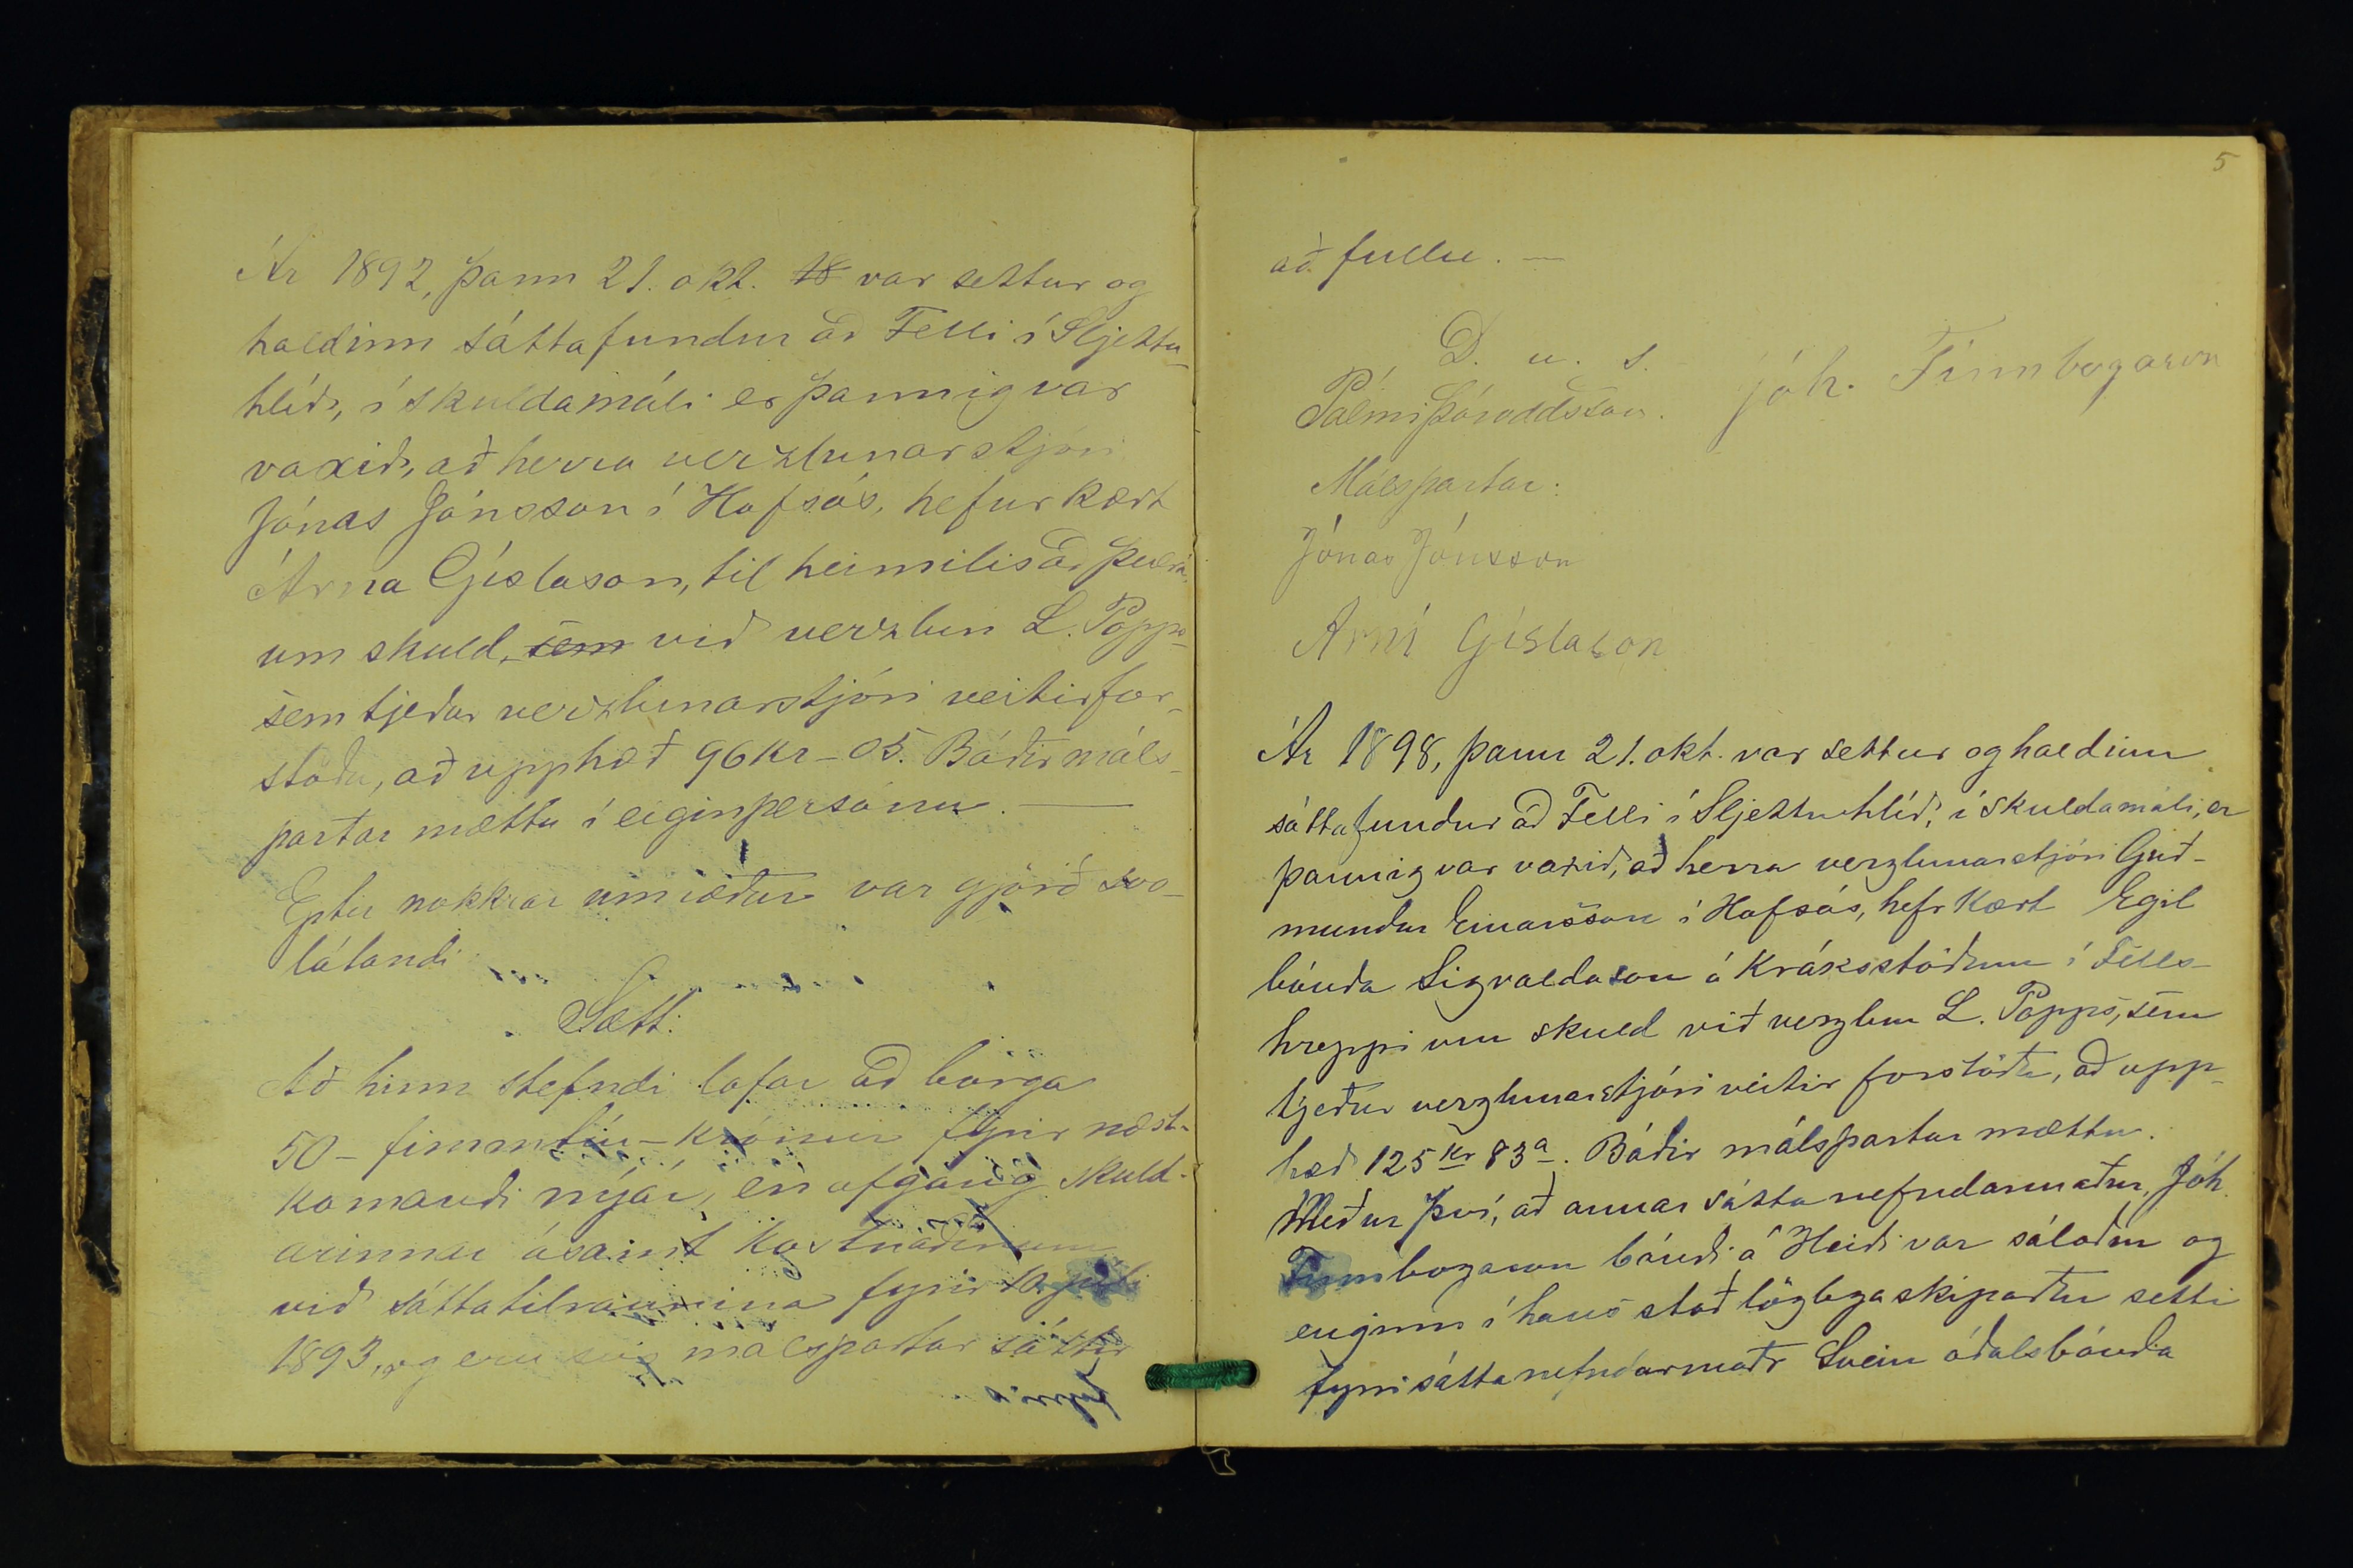 Ár 1892, þann 21. okt. 18 var settur og
haldinn sáttafundur að Felli í Sljettu-
hlíð, í skuldamáli er þannig var
vaxið, að herra verzlunarstjóri
Jónas Jónsson í Hofsós, hefur kært
Árna Gíslason, til heimilis að Þverá
um skuld, sem við verzlun L. Popps
sem tjeður verzlunarstjóri veitir for-
stöðu, að upphæð 96 kr - 05. Báðir máls-
partar mættu í eigin persónu. —
Eptir nokkrar umræður var gjörð svo-
látandi
Sætt:
Að hinn stefndi lofar að borga
50 - fimmtíu - krónur fyrir næst-
komandi nýár, en afgang skuld-
arinnar ásamt kostnaðinum
við sáttatilraunina fyrir 10. júlí
1893, og eru málspartar sáttir
5
að fullu. —
D. u. s.
Pálmi Þóroddsson. Jóh. Finnbogason
Málspartar:
Jónas Jónsson
Arni Gíslason
Ár 1898, þann 21. okt. var settur og haldinn
sáttafundur að Felli í Sljettuhlíð, í skuldamáli, er
þannig var vaxið, að herra verzlunarstjóri Guð-
mundur Einarsson í Hofsós, hefr kært Egil
bónda Sigvaldason á Kráksstöðum í Fells-
hreppi um skuld við verzlun L. Popps, sem
tjeður verzlunarstjóri veitir forstöðu, að upp-
hæð 125 kr 83 a. Báðir málspartar mættu.
Með ur því, að annar sáttanefndarmaður, Jóh.
Finnbogason bóndi á Heiði var sálaður og
enginn í hans stað löglega skipaður setti
fyrri sáttanefndarmaðr Svein óðalsbónda